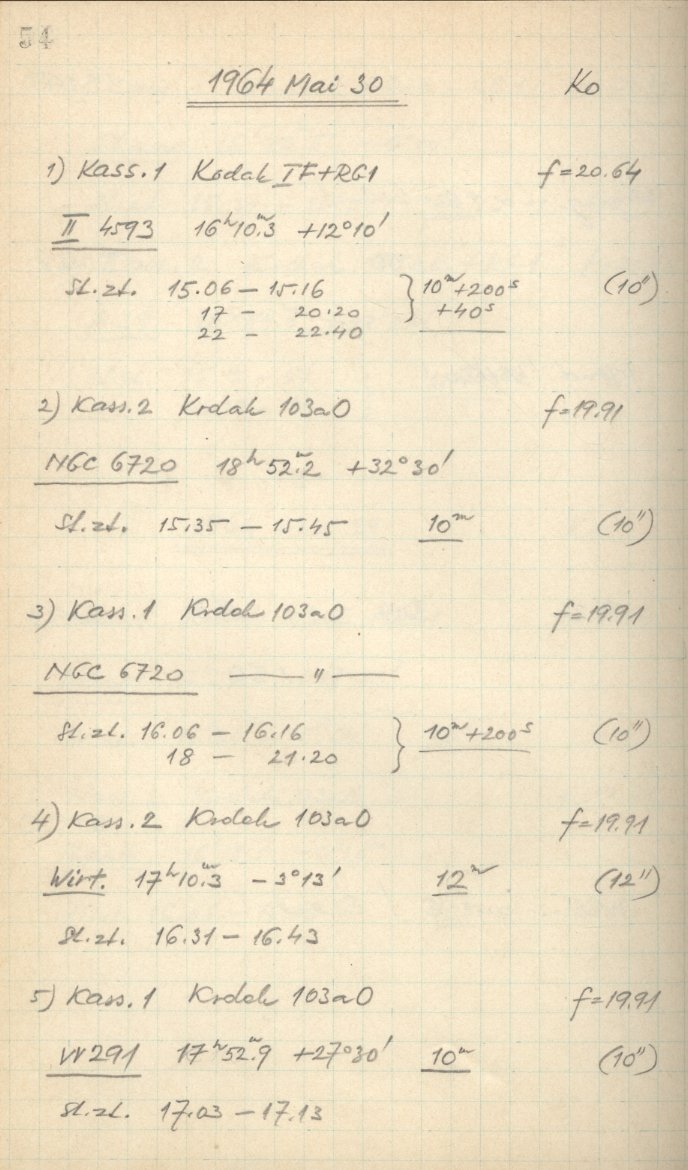 54
1964 Mai 30 Ko
1) Kass.1 Kodak IF+RG1 f=20.64
II 4593 16ʰ10ᵐ.3 +12°10'
St.zt. 15.06 – 15.16 } 10ᵐ+200ˢ (10")
17 – 20.20 +40ˢ
22 – 22.40
2) Kass.2 Kodak 103aO f=19.91
NGC 6720 18ʰ52ᵐ.2 +32°30'
St.zt. 15.35 – 15.45 10ᵐ (10")
3) Kass.1 Kodak 103aO f=19.91
NGC 6720 —— " ——
St.zt. 16.06 – 16.16 } 10ᵐ+200ˢ (10")
18 – 21.20
4) Kass.2 Kodak 103aO f=19.91
Wirt. 17ʰ10ᵐ.3 – 3°13' 12ᵐ (12")
St.zt. 16.31 – 16.43
5) Kass.1 Kodak 103aO f=19.91
VV 291 17ʰ52ᵐ.9 +27°30' 10ᵐ (10")
St.zt. 17.03 – 17.13